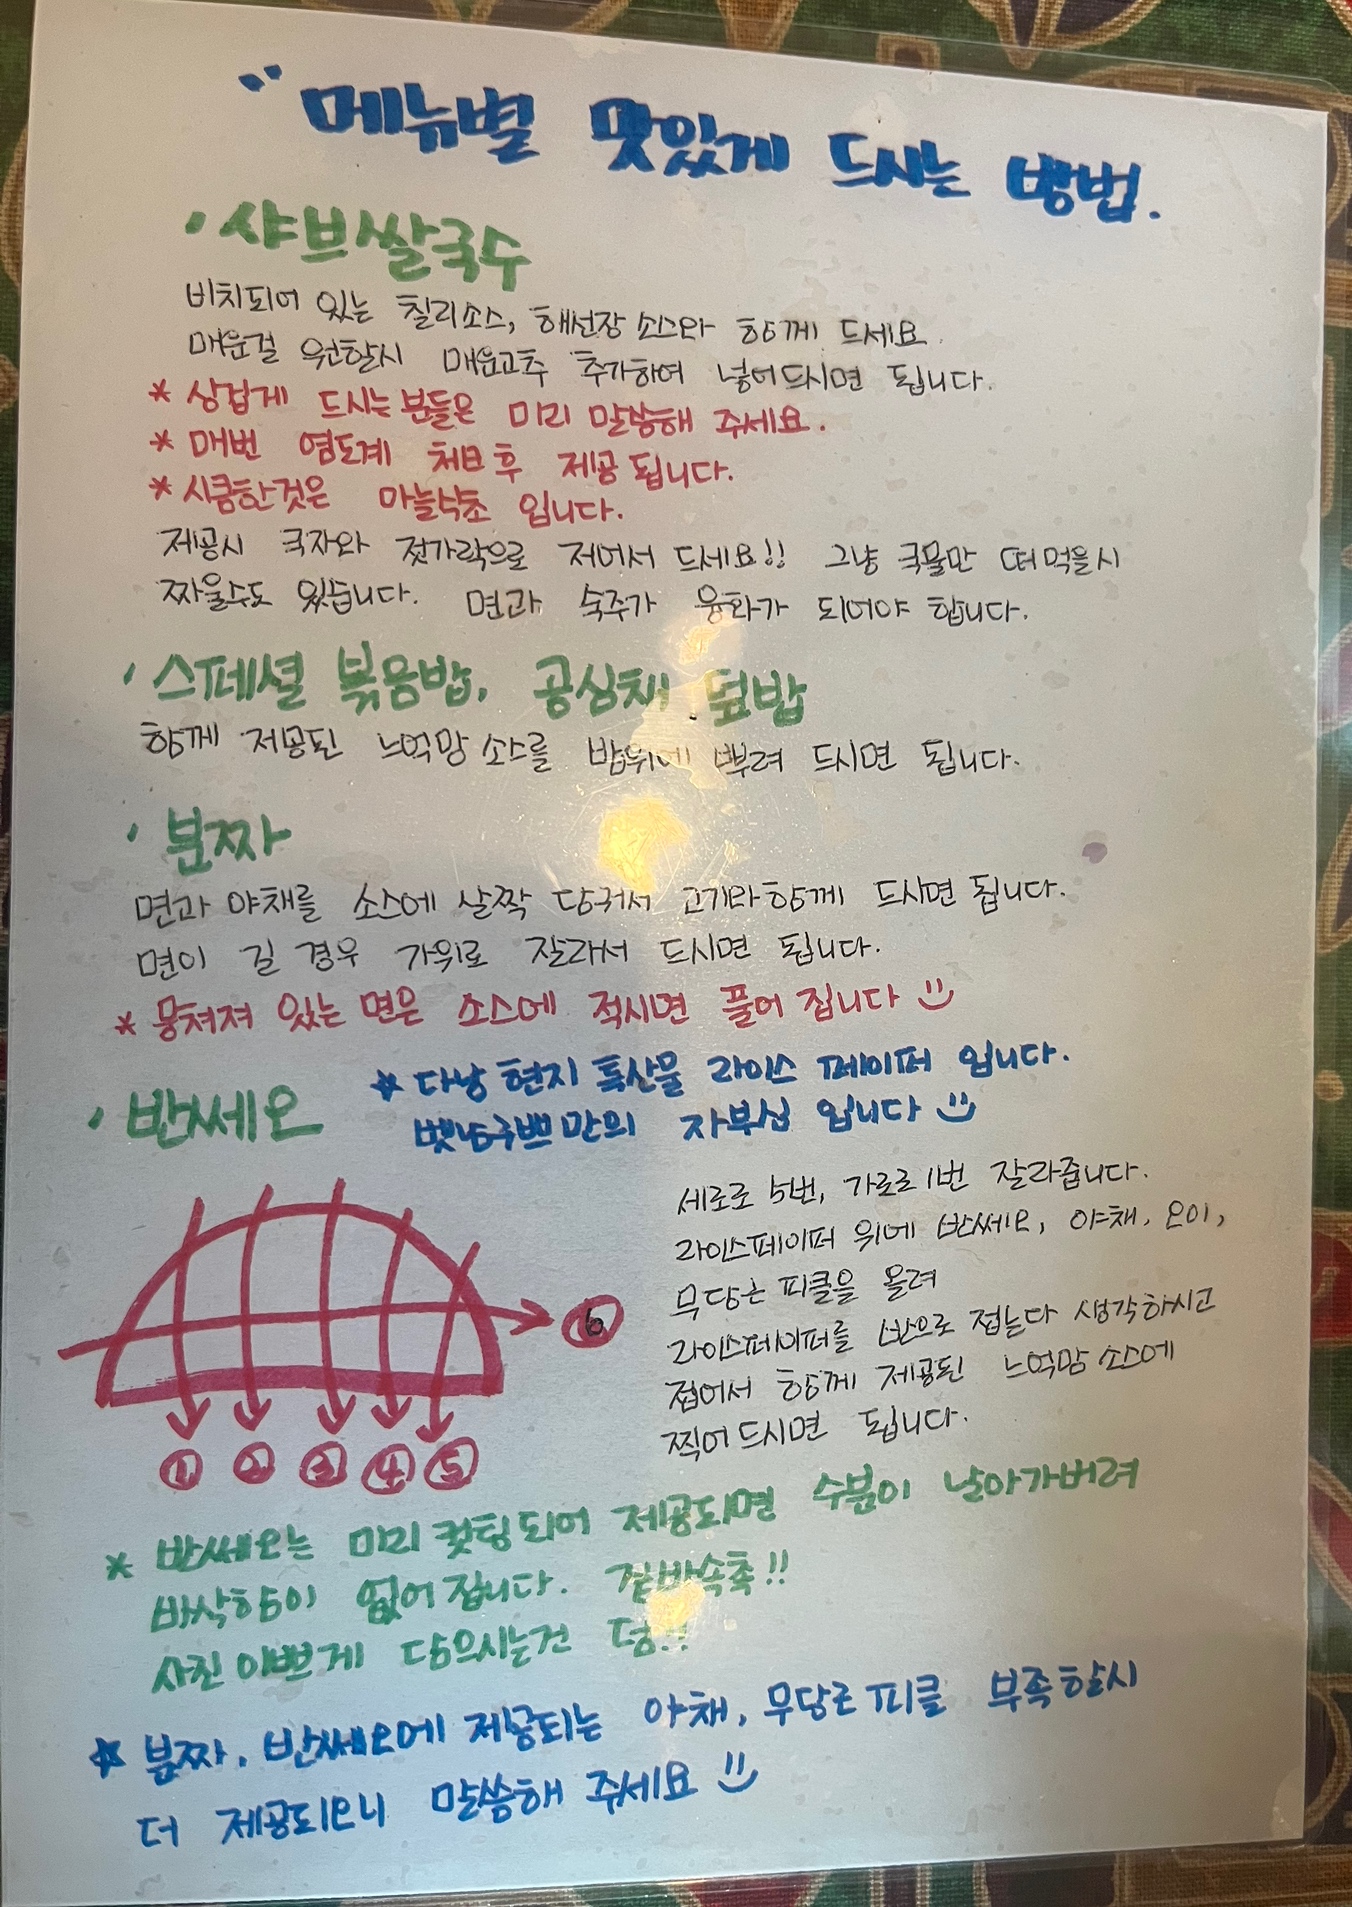 " 메뉴별 맛있게 드시는 방법.
· 샤브쌀국수
비치되어 있는 칠리소스, 해선장 소스와 함께 드세요.
매운걸 원할시 매운고추 추가하여 넣어드시면 됩니다.
* 싱겁게 드시는분들은 미리 말씀해 주세요.
* 매번 염도계 체크후 제공 됩니다.
* 시큼한것은 마늘식초 입니다.
제공시 국자와 젓가락으로 저어서 드세요!! 그냥 국물만 떠먹을시
짜울수도 있습니다. 면과 숙주가 융화가 되어야 합니다.
· 스페셜 볶음밥, 공심채 덮밥
함께 제공된 느억맘 소스를 밥위에 뿌려 드시면 됩니다.
· 분짜
면과 야채를 소스에 살짝 담궈서 고기와함께 드시면 됩니다.
면이 길 경우 가위로 잘라서 드시면 됩니다.
* 뭉쳐져 있는 면은 소스에 적시면 풀어 집니다
· 반쎄오
* 다낭 현지 특산물 라이스 페이퍼 입니다.
벳남쿠쁘만의 자부심 입니다
세로로 5번, 가로로 1번 잘라줍니다.
라이스페이퍼 위에 반쎄오, 야채, 오이,
무당근 피클을 올려
라이스페이퍼를 반으로 접는다 생각하시고
접어서 함께 제공된 느억맘 소스에
찍어 드시면 됩니다.
6
① ② ③ ④ ⑤
* 반쎄오는 미리 컷팅 되어 제공되면 수분이 날아가버려
바삭함이 없어 집니다. 겉바속촉!!
사진 이쁘게 담으시는건 덤!!
* 분짜, 반쎄오에 제공되는 야채, 무당근 피클 부족할시
더 제공되오니 말씀해 주세요